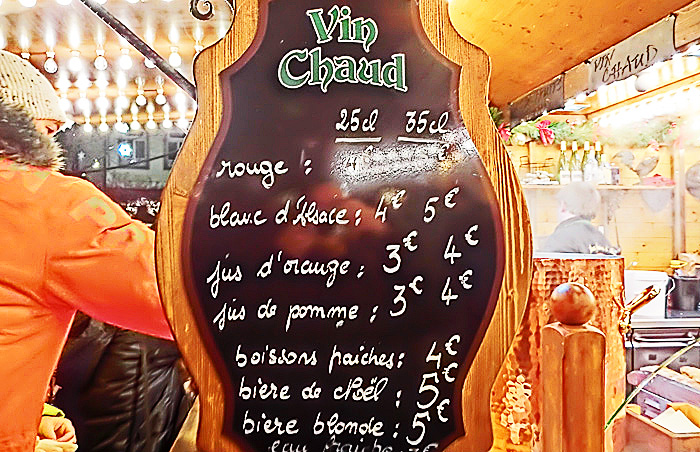 Vin
Chaud
25cl 35cl
rouge : 4€ €
blanc d'Alsace : 4€ 5€
jus d'orange : 3€ 4€
jus de pomme : 3€ 4€
boissons fraiches : 4€
bière de Noël : 5€
bière blonde : 5€
eau fraiche
VIN
CHAUD